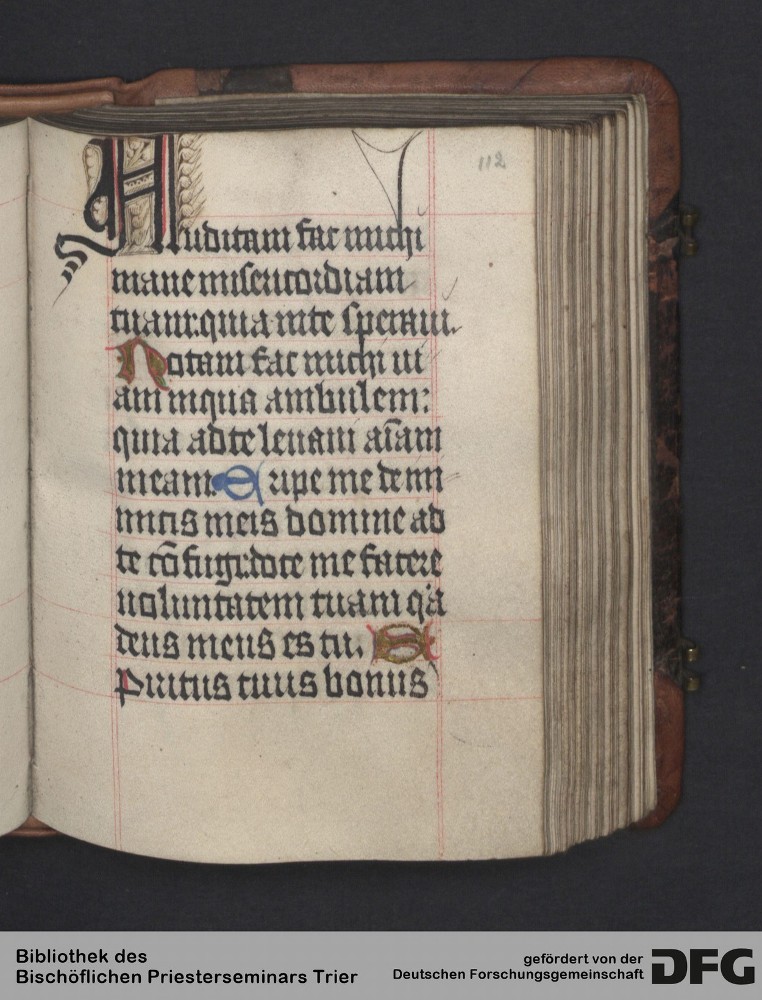 112
Auditam fac michi
mane misericordiam
tuam: quia in te speraui.
Notam fac michi ui
am in qua ambulem:
quia ad te leuaui aīam
meam. Eripe me de ini
micis meis domine ad
te cōfugi: doce me facere
uoluntatem tuam q̄a
deus meus es tu. S
piritus tuus bonus
Bibliothek des
Bischöflichen Priesterseminars Trier
gefördert von der
Deutschen Forschungsgemeinschaft
DFG